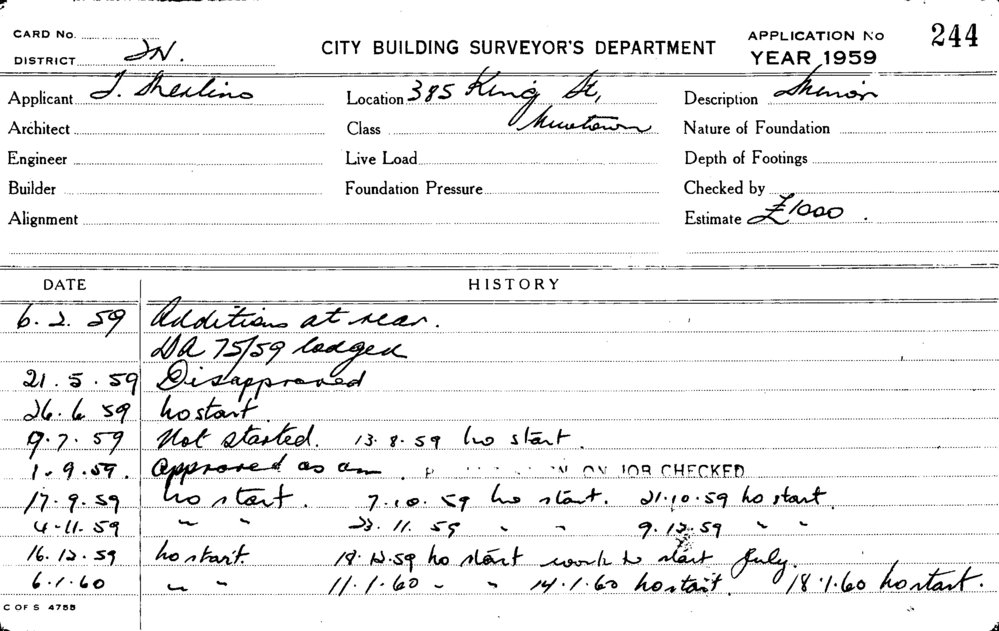 CARD No.
DISTRICT JN.
CITY BUILDING SURVEYOR'S DEPARTMENT
APPLICATION No 244
YEAR 1959
Applicant J. Merlino Location 385 King St, Description
Architect Class Newtown Nature of Foundation
Engineer Live Load Depth of Footings
Builder Foundation Pressure Checked by
Alignment Estimate £1000.
DATE HISTORY
6.2.59 Additions at rear.
DA 75/59 lodged
21.5.59 Disapproved
26.6.59 No start.
9.7.59 Not started. 13.8.59 No start.
1.9.59. Approved as am ON JOB CHECKED
17.9.59 No start. 7.10.59 No start. 21.10.59 No start.
4.11.59 " " 23.11.59 " " 9.12.59 " "
16.12.59 No start. 18.12.59 No start work to start July.
6.1.60 " " 11.1.60 " " 14.1.60 No start. 18.1.60 No start.
C OF S 475B